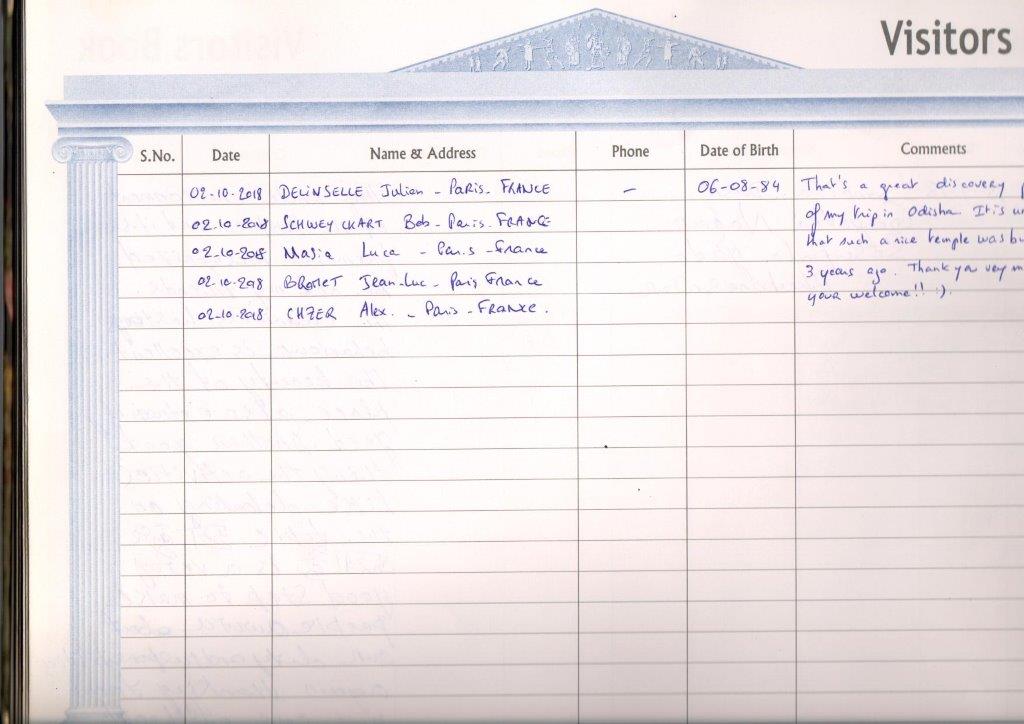 Visitors
S.No. Date Name & Address Phone Date of Birth Comments
02-10-2018 DELINSELLE Julien - PARIS - FRANCE - 06-08-84 That's a great discovery
02-10-2018 SCHWEYCKART Bob - Paris - FRANCE of my trip in Odisha. It is
02-10-2018 Luca - Paris - France that such a nice temple was
02-10-2018 Jean-Luc - Paris France 3 years ago. Thank you very
02-10-2018 Alex. - Paris - FRANCE. your welcome!! :).